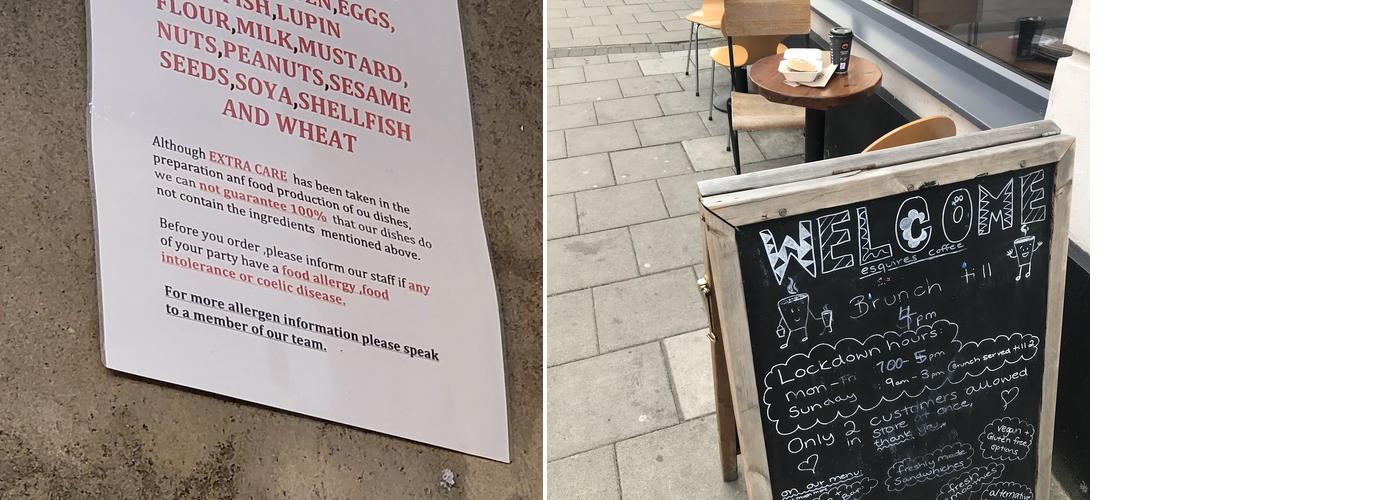 EN,EGGS,
FISH,LUPIN
FLOUR,MILK,MUSTARD,
NUTS,PEANUTS,SESAME
SEEDS,SOYA,SHELLFISH
AND WHEAT
Although EXTRA CARE has been taken in the
preparation anf food production of ou dishes,
we can not guarantee 100% that our dishes do
not contain the ingredients mentioned above.
Before you order ,please inform our staff if any
of your party have a food allergy ,food
intolerance or coelic disease.
For more allergen information please speak
to a member of our team.
WELCOME
esquires coffee
Brunch till
4pm
Lockdown hours:
mon-Fri 700-5pm
Sunday 9am-3pm (Brunch served till 2
Only 2 customers allowed
in store at once,
thank you
vegan +
Gluten free
options
on our menu:
freshly made
Sandwhiches
fresh
smoothies
alternative